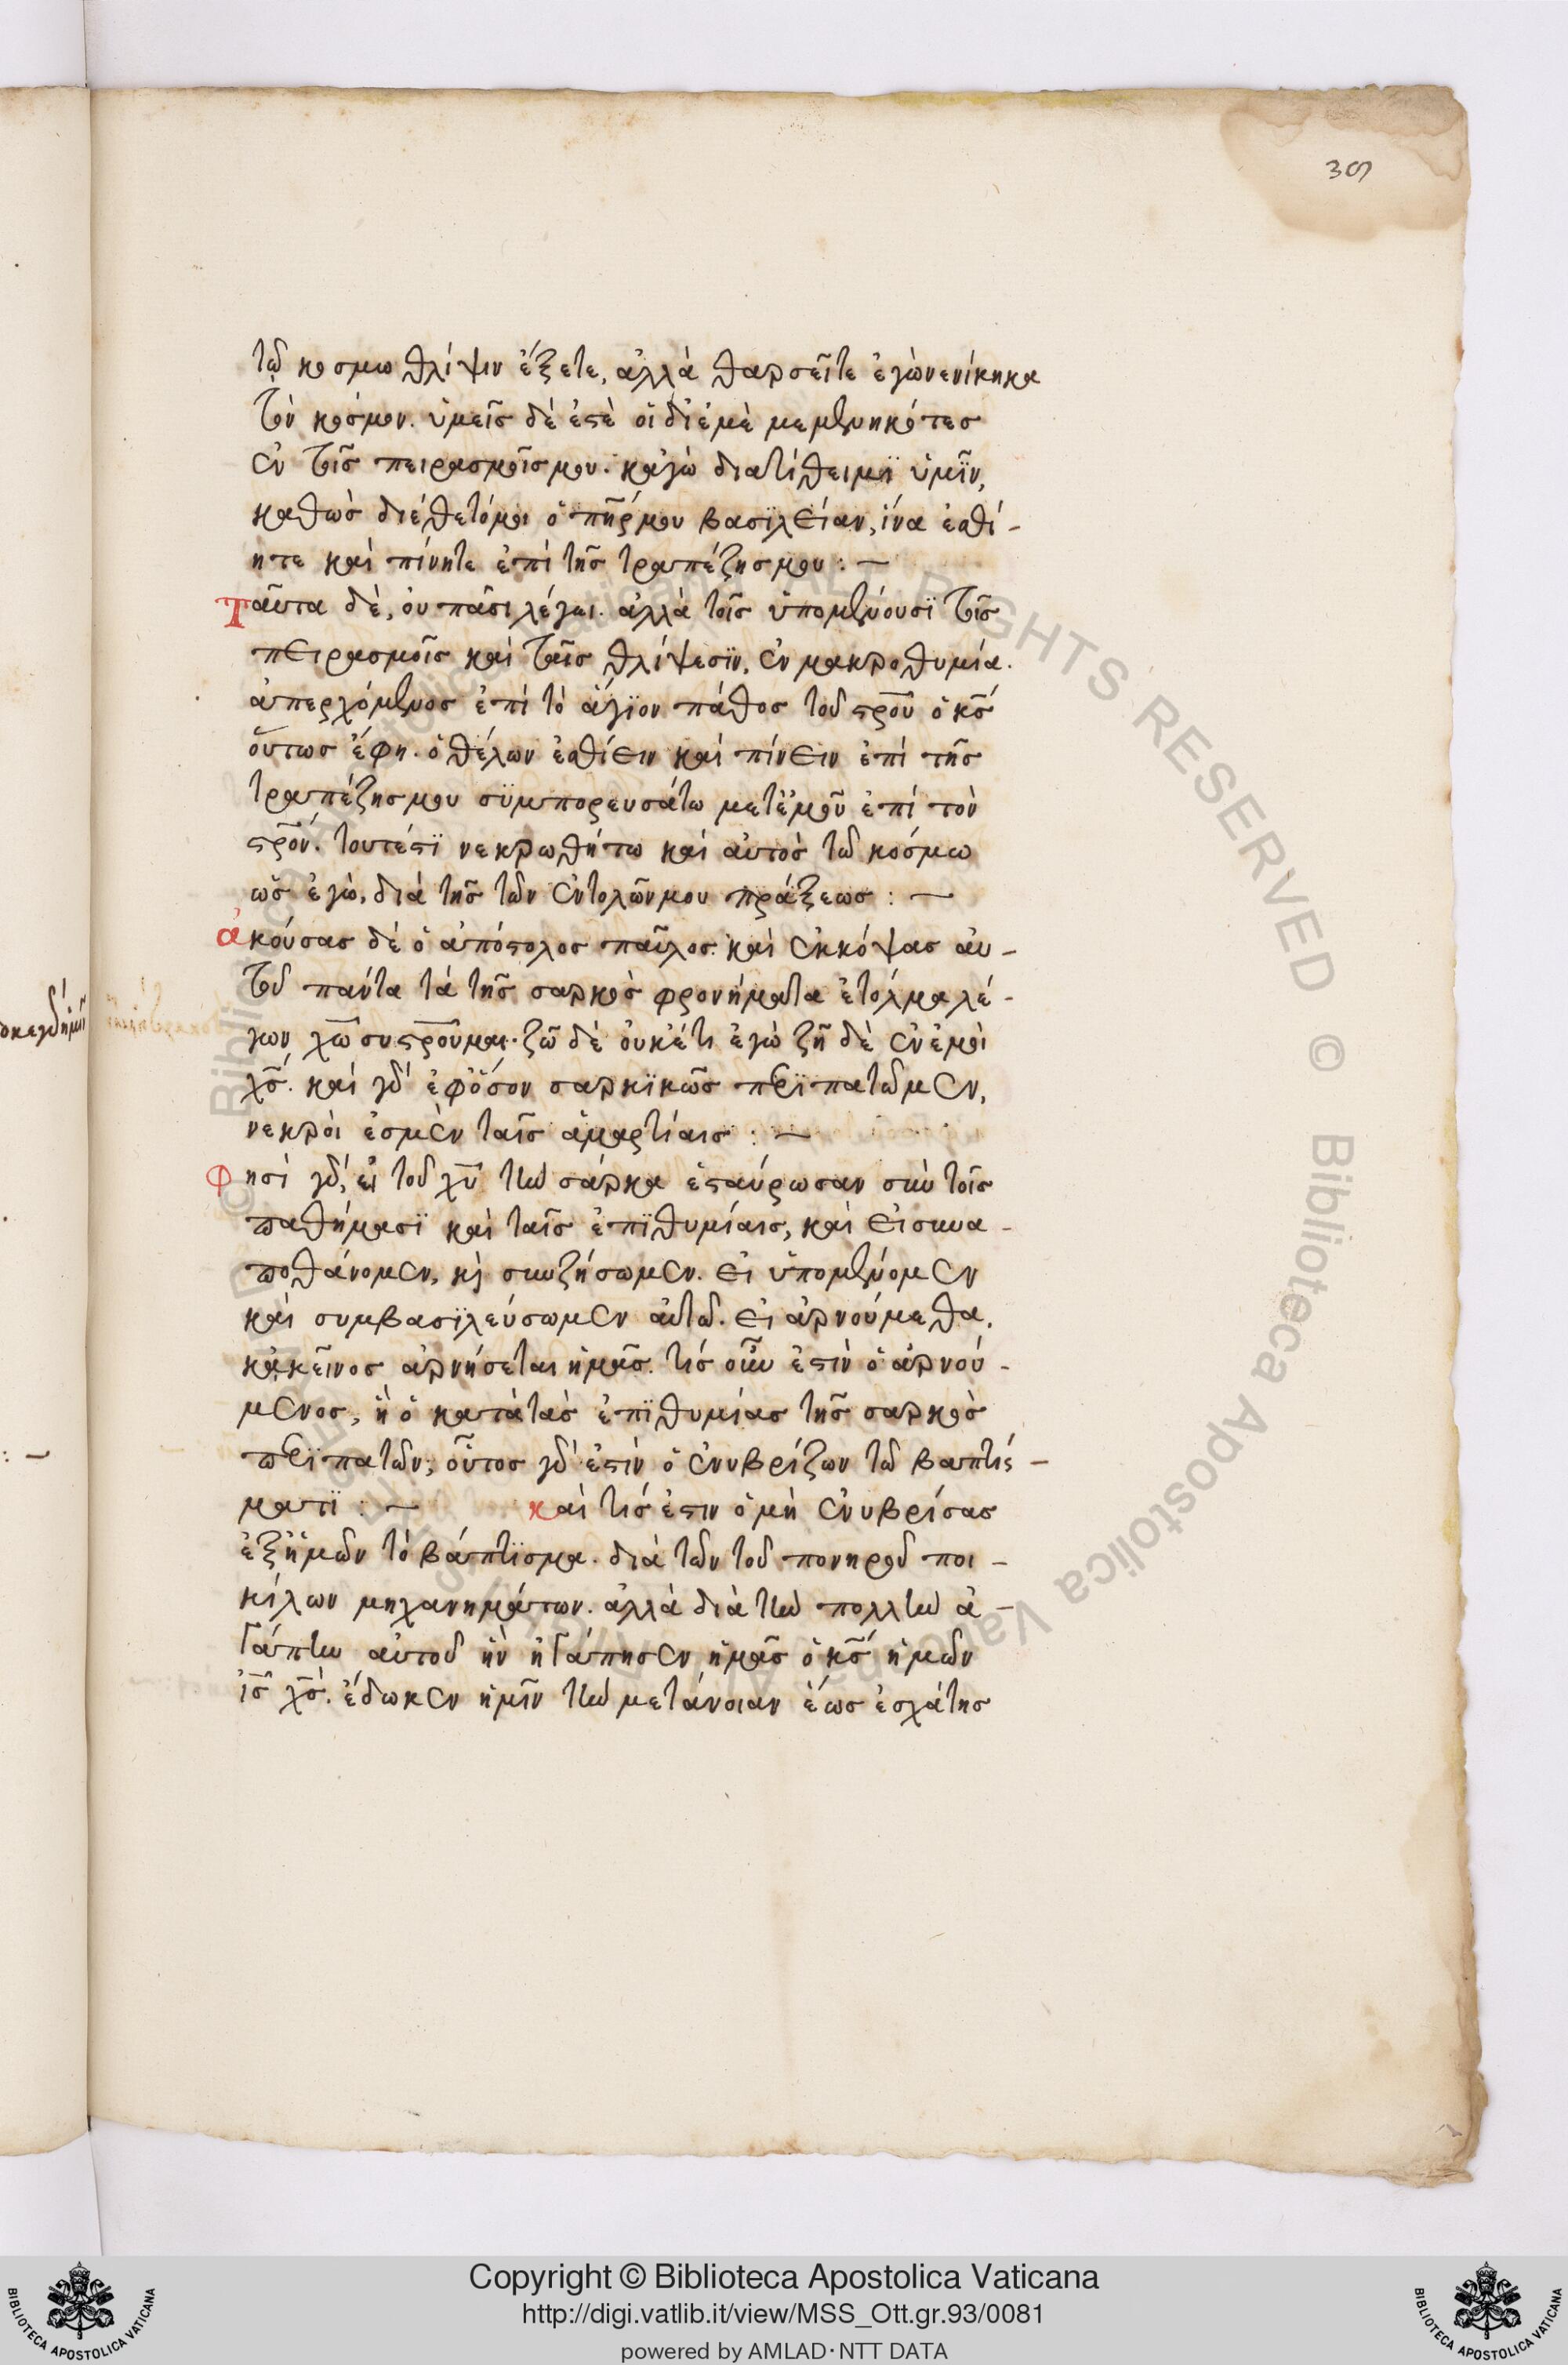 39
τῶ κοσμω θλίψιν ἕξετε, ἀλλὰ θαρσεῖτε ἐγὼ νενίκηκα
τὸν κόσμον. ὑμεῖς δὲ ἐστὲ οἱ δι ἐμὲ μεμενηκότες
ἐν τοῖς πειρασμοῖς μου. καγὼ διατίθειμϊ ὑμῖν,
καθὼς διέθετό μοι ὁ πῆρ μου βασϊλείαν, ἵνα ἐσθί-
ητε καὶ πίνητε ἐπὶ τῆς τραπέζης μου : —
Ταῦτα δὲ, οὐ πᾶσι λέγω. ἀλλὰ τοῖς ὑπομένουσϊ τοῖς
πειρασμοῖς καὶ ταῖς θλίψεσϊν, ἐν μακροθυμία.
ἀπερχόμενος ἐπὶ τὸ ἅγϊον πάθος τοῦ σροῦ ὁ κς
οὕτως ἔφη. ὁ θέλων ἐσθίειν καὶ πίνειν ἐπὶ τῆς
τραπέζης μου σϋμπορευσάτω μετ ἐμοῦ ἐπὶ τὸν
σρόν. τουτέστϊ νεκρωθήτω καὶ αὐτὸς τῶ κόσμω
ὡς ἐγὼ, διὰ τῆς τῶν ἐντολῶν μου πράξεως : —
ἀκούσας δὲ ὁ ἀπόστολος παῦλος. καὶ ἐκκόψας αὐ-
τοῦ πάντα τὰ τῆς σαρκὸς φρονήματα ἐτόλμα λέ-
γων χῶ συσροῦμαι. ζῶ δὲ οὐκέτι ἐγὼ ζῆ δὲ ἐν ἐμοὶ
χς. καὶ γὰρ ἐφ ὅσον σαρκϊκῶς περϊπατῶμεν,
νεκροὶ ἐσμὲν ταῖς ἁμαρτίαις : —
Φησὶ γὰρ, εἰ τοῦ χυ τὴν σάρκα ἐσταύρωσαν σὺν τοῖς
παθήμασϊ καὶ ταῖς ἐπϊθυμίαις, καὶ εἰ συνα-
ποθάνομεν, καὶ συνζήσωμεν. εἰ ὑπομένομεν
καὶ συμβασϊλεύσωμεν αὐτῶ. εἰ ἀρνούμεθα,
κακεῖνος ἀρνήσεται ἡμᾶς. τίς οὖν ἐστὶν ὁ ἀρνού-
μενος, ἢ ὁ κατὰ τὰς ἐπϊθυμίας τῆς σαρκὸς
περϊπατῶν; οὗτος γὰρ ἐστὶν ὁ ἐνυβρίζων τῶ βαπτίσ-
ματϊ : — καὶ τίς ἐστιν ὁ μὴ ἐνυβρίσας
ἐξ ἡμῶν τὸ βάπτϊσμα. διὰ τῶν τοῦ πονηροῦ ποι-
κίλων μηχανημάτων. ἀλλὰ διὰ τὴν πολλὴν ἀ-
γάπην αὐτοῦ ἣν ἠγάπησεν ἡμᾶς ὁ κς ἡμῶν
ις χς. ἔδωκεν ἡμῖν τὴν μετάνοιαν ἕως ἐσχάτης
Copyright © Biblioteca Apostolica Vaticana
http://digi.vatlib.it/view/MSS_Ott.gr.93/0081
powered by AMLAD·NTT DATA